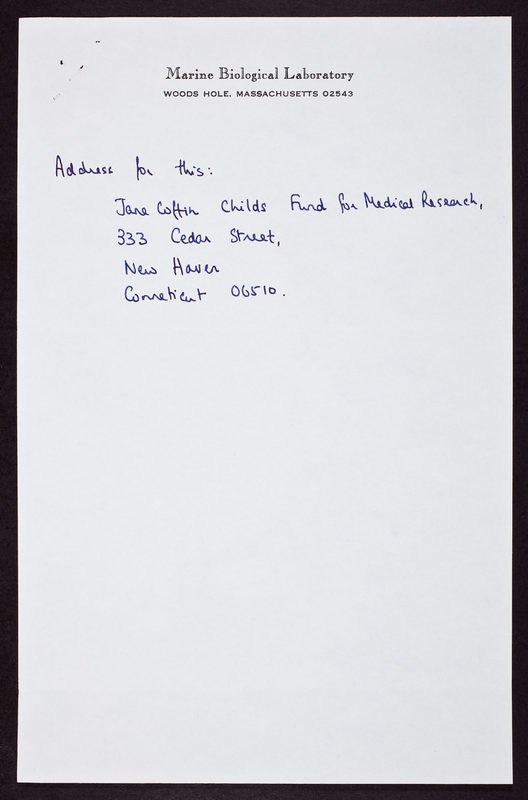 Marine Biological Laboratory
WOODS HOLE, MASSACHUSETTS 02543
Address for this:
Jane Coffin Childs Fund for Medical Research,
333 Cedar Street,
New Haven
Conneticut 06510.